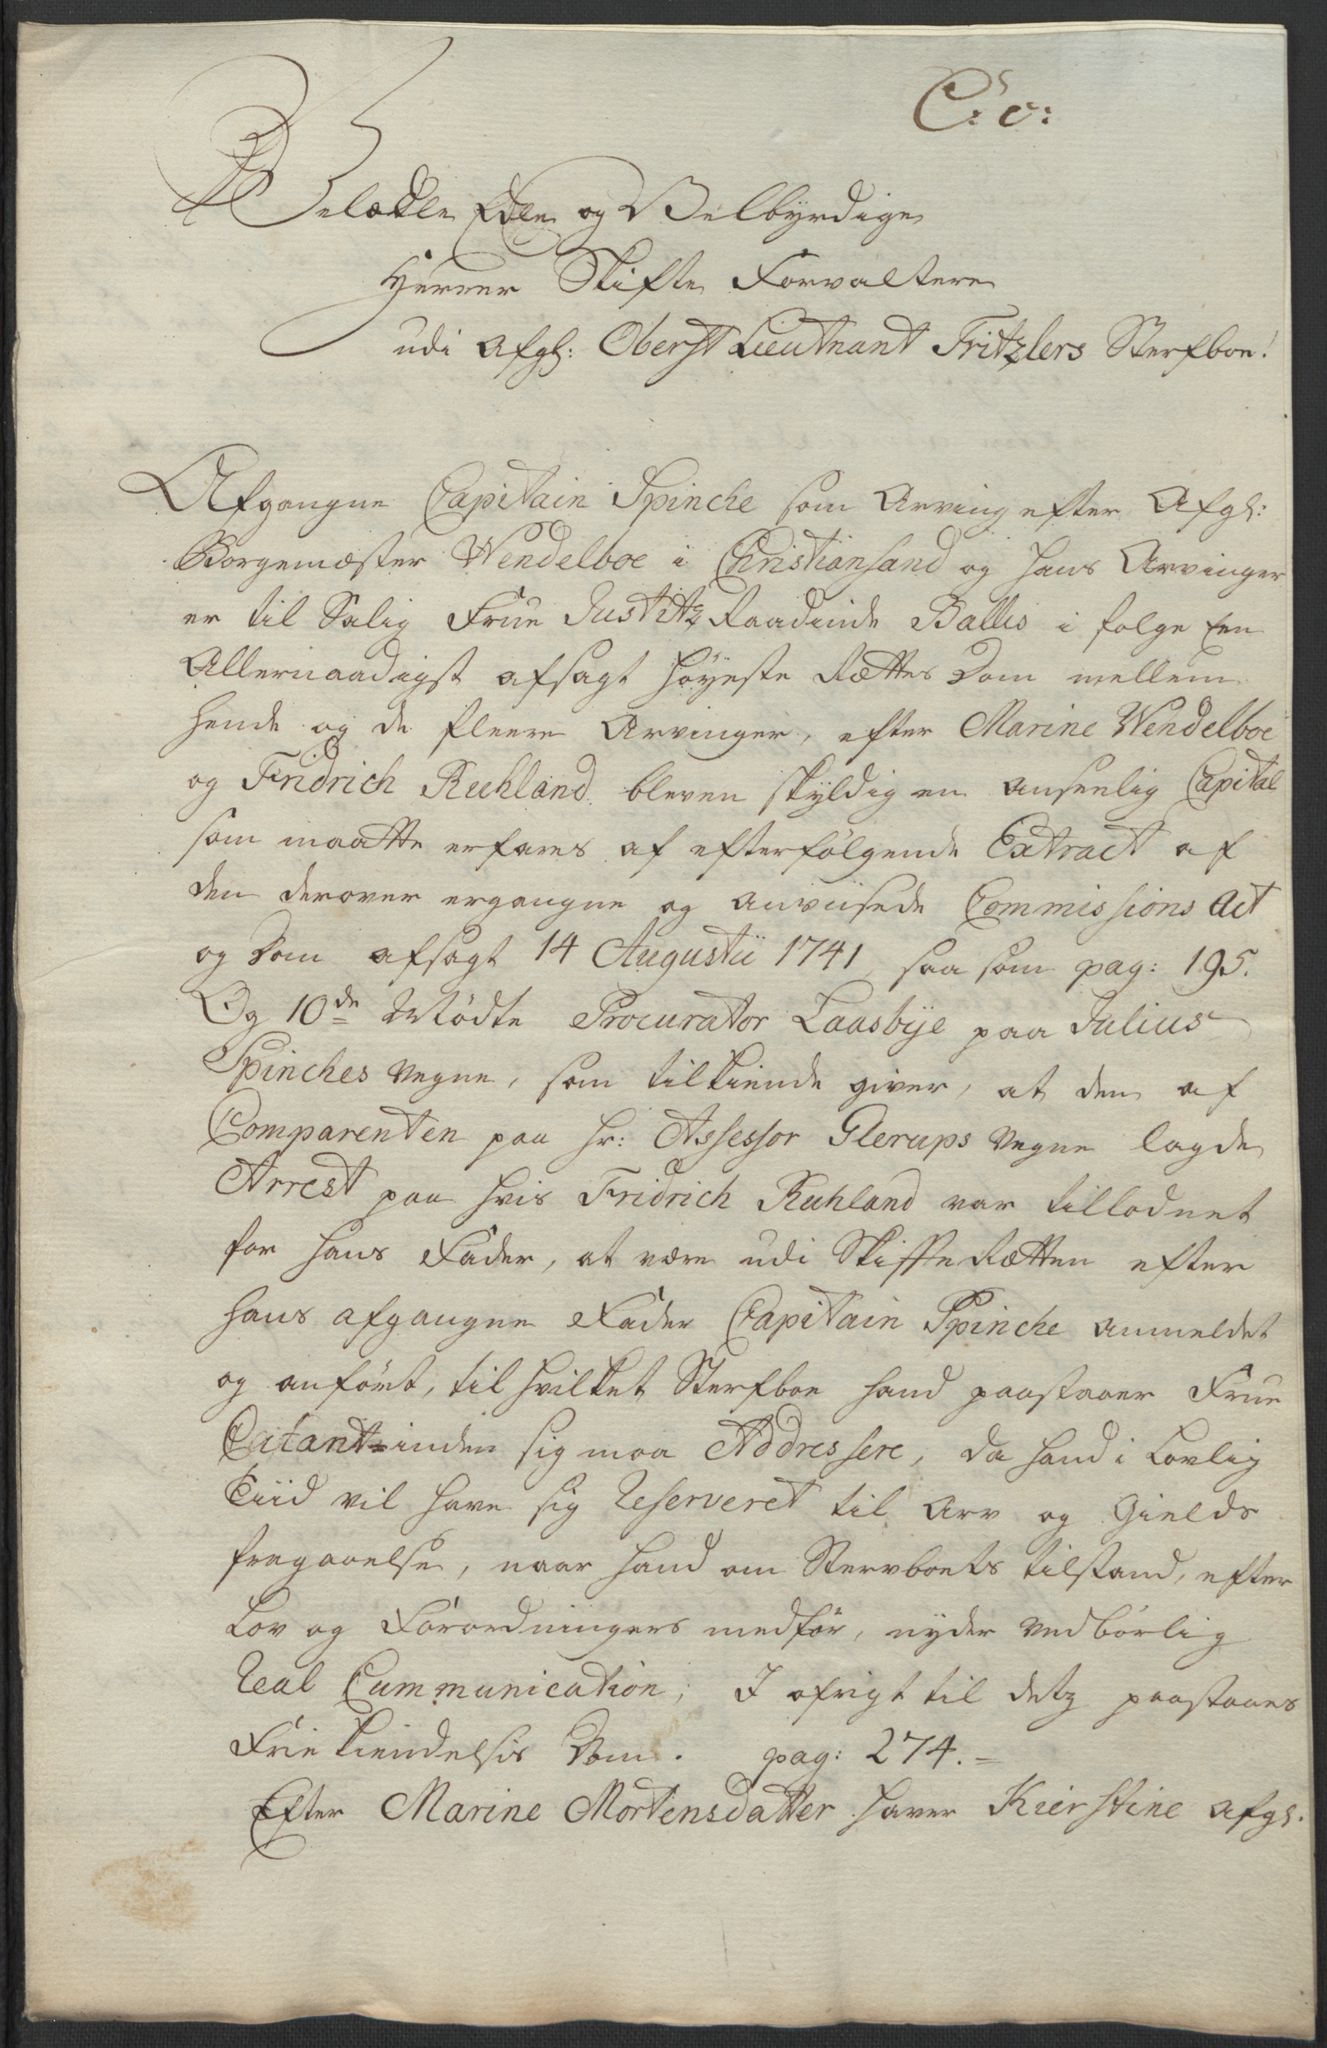 C: c:
Velædle Edle og Velbyrdige
Herrer Skifte Forvaltere
udi Afgl: Oberst Lieutnant Fritzlers Sterfboe!
Afgangne Capitain Spinche som Arving efter Afgl:
Borgemæster Wendelboe i Christiansand og hans Arvinger
er til Salig Frue Justitz Raadinde Balles i følge Een
Allernaadigst afsagt Høyeste Rættes Dom mellem
hende og de fleere Arvinger, efter Marine Wendelboe
og Fridrich Ruhland bleven skyldig en ansenlig Capital
som maatte erfares af efterfølgende Extract af
den derover ergangne og anviisede Commissions Act
og Dom afsagt 14 Augustii 1741 saa som pag: 195.
Og 10de Mødte Procurator Laasbye paa Julius
Spinches Vegne, som tilkiende giver, at den af
Comparenten paa Hr: Assessor Glerups Vegne lagde
Arrest paa hvis Fridrich Ruhland var tillodnet
for hans Fader, at være udi Skiffte Rætten efter
hans afgangne Fader Capitain Spinche anmeldet
og anført, til hvilket Sterfboe hand paastaaer Frue
Citantinden sig maa Addressere, da hand i Lovlig
Tiid vil have sig Reserveret til Arv og Gields
fragaaelse, naar hand om Stervboets tilstand, efter
Lov og Forordningers medfør, nyder vedbørlig
Real Cummunication; I øfrigt til detz paastaaes
Frie kiendelsis Dom. pag: 274.
Efter Marine Mortensdatter haver Kierstine Afgl.